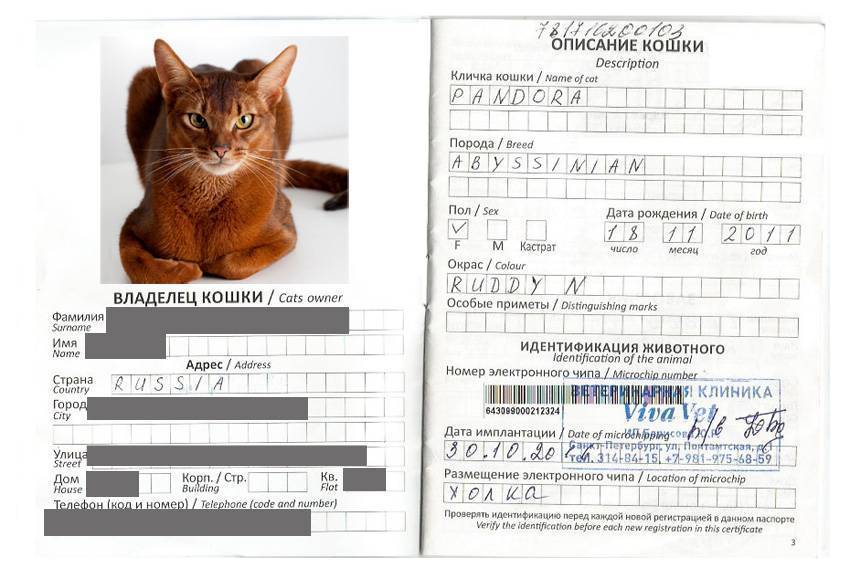 ВЛАДЕЛЕЦ КОШКИ / Cats owner
Фамилия
Surname
Имя
Name
Адрес / Address
Страна
Country
RUSSIA
Город
City
Улица
Street
Дом
House
Корп. / Стр.
Building
Кв.
Flat
Телефон (код и номер) / Telephone (code and number)
ОПИСАНИЕ КОШКИ
Description
Кличка кошки / Name of cat
PANDORA
Порода / Breed
ABYSSINIAN
Пол / Sex
Дата рождения / Date of birth
F M Кастрат
18 11 2011
число месяц год
Окрас / Colour
RUDDY N
Особые приметы / Distinguishing marks
ИДЕНТИФИКАЦИЯ ЖИВОТНОГО
Identification of the animal
Номер электронного чипа / Microchip number
643099000212324
ВЕТЕРИНАРНАЯ КЛИНИКА
Viva Vet
Дата имплантации / Date of microchipping
30.10.20
Санкт-Петербург, ул.
тел. 314-84-15, +7-981-975-68-59
Размещение электронного чипа / Location of microchip
ХОЛКА
Проверять идентификацию перед каждой новой регистрацией в данном паспорте
Verify the identification before each new registration in this certificate
3